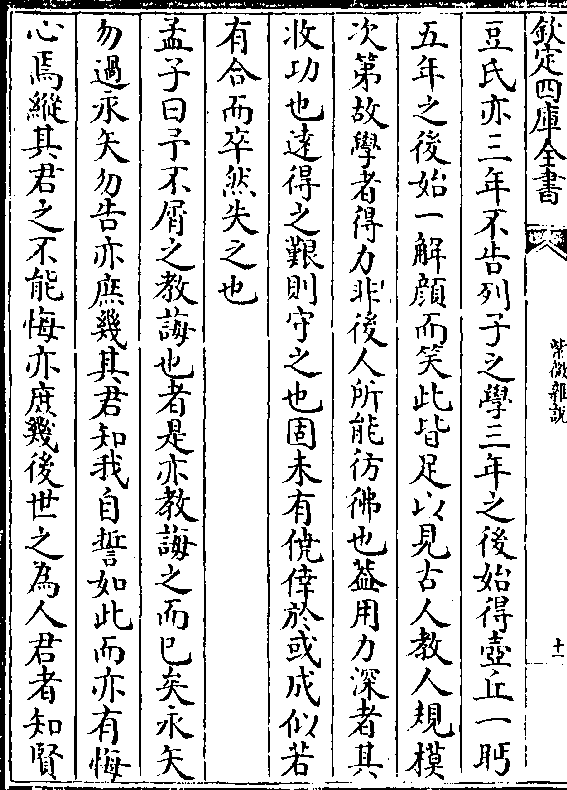 欽定四庫全書
紫微雜說
十一
豆氏亦三年不告列子之學三年之後始得壺丘一眄
五年之後始一解顔而笑此皆足以見古人教人規模
次第故學者得力非後人所能彷彿也葢用力深者其
收功也逺得之艱則守之也固未有僥倖於或成似若
有合而卒然失之也
孟子曰予不屑之教誨也者是亦教誨之而已矣永矢
勿過永矢勿告亦庶幾其君知我自誓如此而亦有悔
心焉縱其君之不能悔亦庶幾後世之為人君者知賢